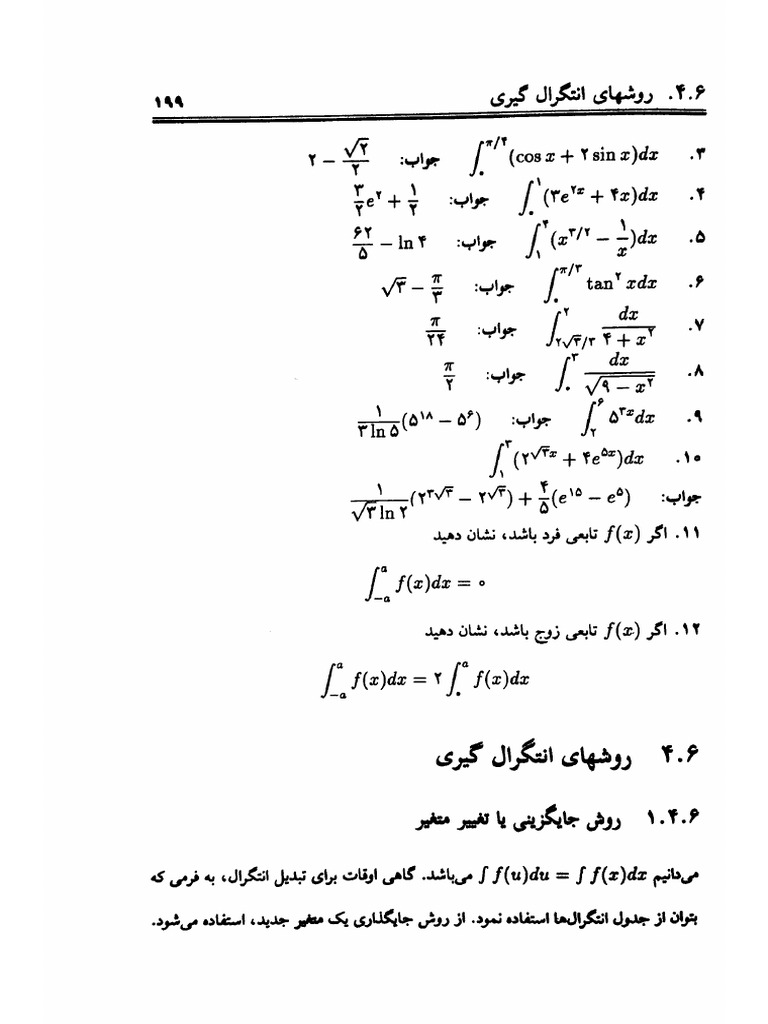 ۴.۶. روشهای انتگرال گیری ۱۹۹
۳. ∫_۰^{π/۴} (cos x + ۲ sin x)dx جواب: ۲ − √۲/۲
۴. ∫_۰^۱ (۳e^{۲x} + ۴x)dx جواب: ۳/۲ e^۲ + ۱/۲
۵. ∫_۱^۴ (x^{۳/۲} − ۱/x)dx جواب: ۶۲/۵ − ln ۴
۶. ∫_۰^{π/۳} tan^۲ xdx جواب: √۳ − π/۳
۷. ∫_{۲√۳/۳}^۲ dx/(۴ + x^۲) جواب: π/۲۴
۸. ∫_۰^۳ dx/√(۹ − x^۲) جواب: π/۲
۹. ∫_۲^۶ ۵^{۳x}dx جواب: ۱/(۳ ln ۵) (۵^{۱۸} − ۵^۶)
۱۰. ∫_۱^۳ (۲^{√۳x} + ۴e^{۵x})dx
جواب: ۱/(√۳ ln ۲) (۲^{۳√۳} − ۲^{√۳}) + ۴/۵ (e^{۱۵} − e^۵)
۱۱. اگر f(x) تابعی فرد باشد، نشان دهید
∫_{−a}^a f(x)dx = ۰
۱۲. اگر f(x) تابعی زوج باشد، نشان دهید
∫_{−a}^a f(x)dx = ۲ ∫_۰^a f(x)dx
۴.۶ روشهای انتگرال گیری
۱.۴.۶ روش جایگزینی یا تغییر متغیر
می‌دانیم ∫ f(u)du = ∫ f(x)dx می‌باشد. گاهی اوقات برای تبدیل انتگرال، به فرمی که
بتوان از جدول انتگرال‌ها استفاده نمود. از روش جایگذاری یک متغیر جدید، استفاده می‌شود.